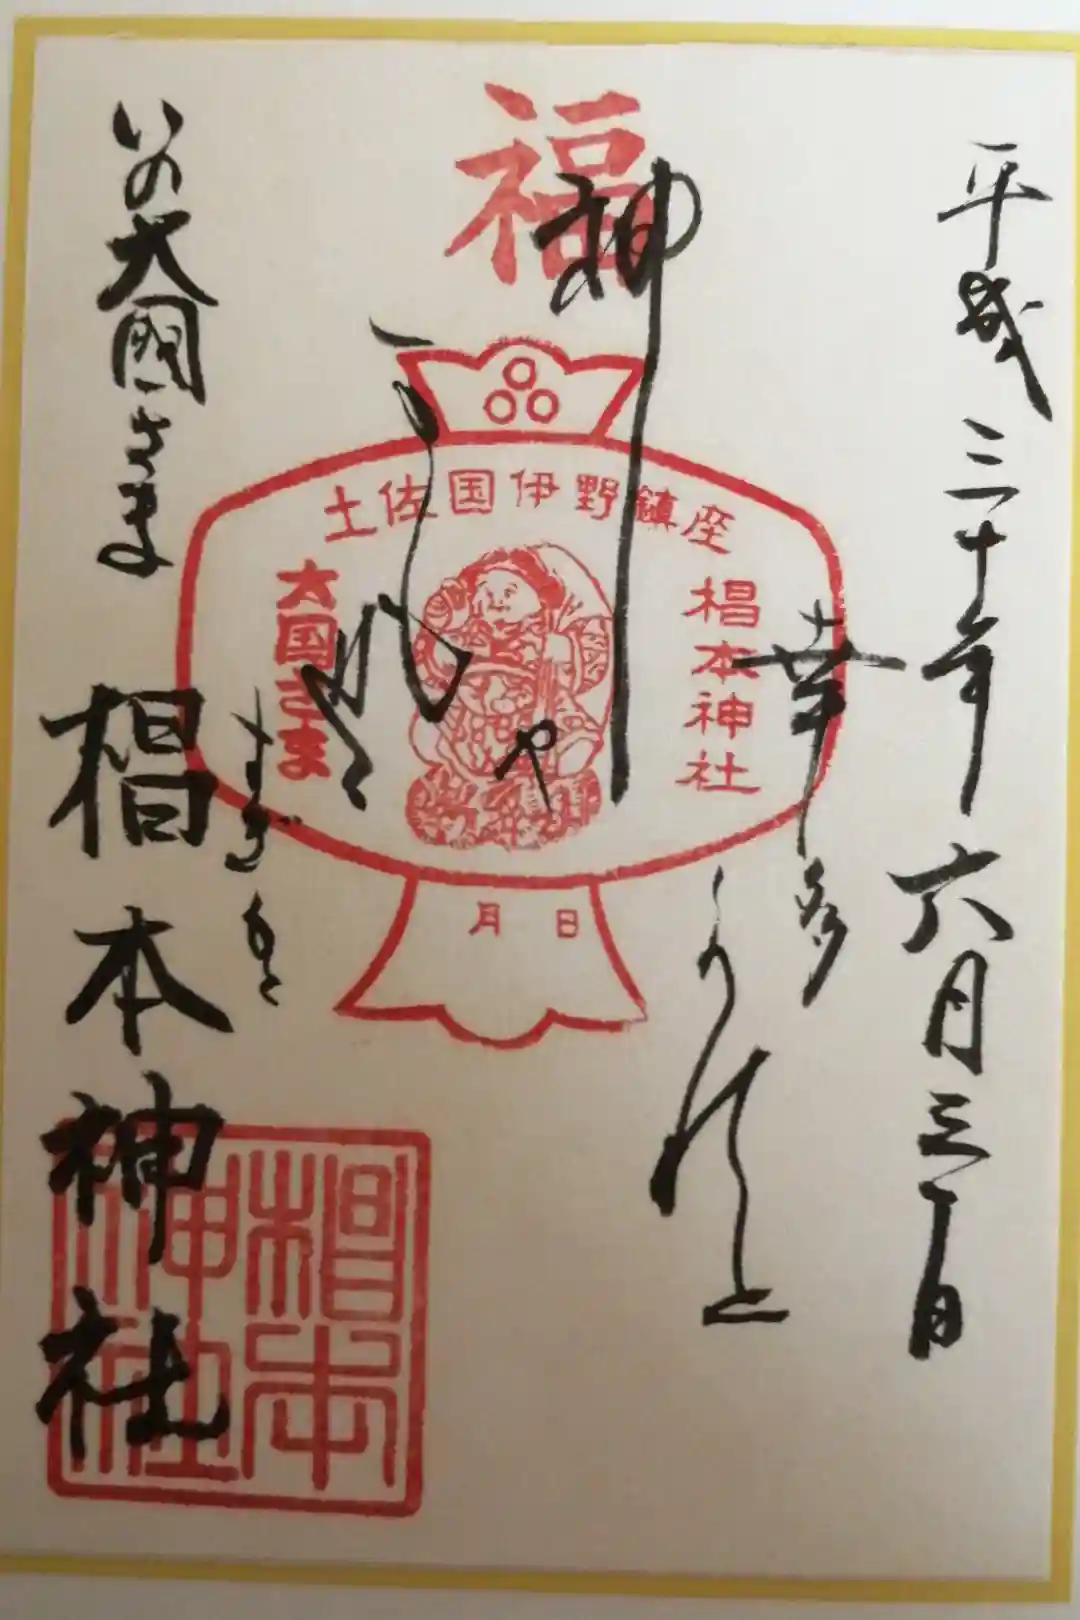 平成三十年六月三日
幸多かれと
神
や
福
土佐国伊野鎮座
椙本神社
大国さま
月 日
いの大國さま
すぎもと
椙本神社
椙本
神社